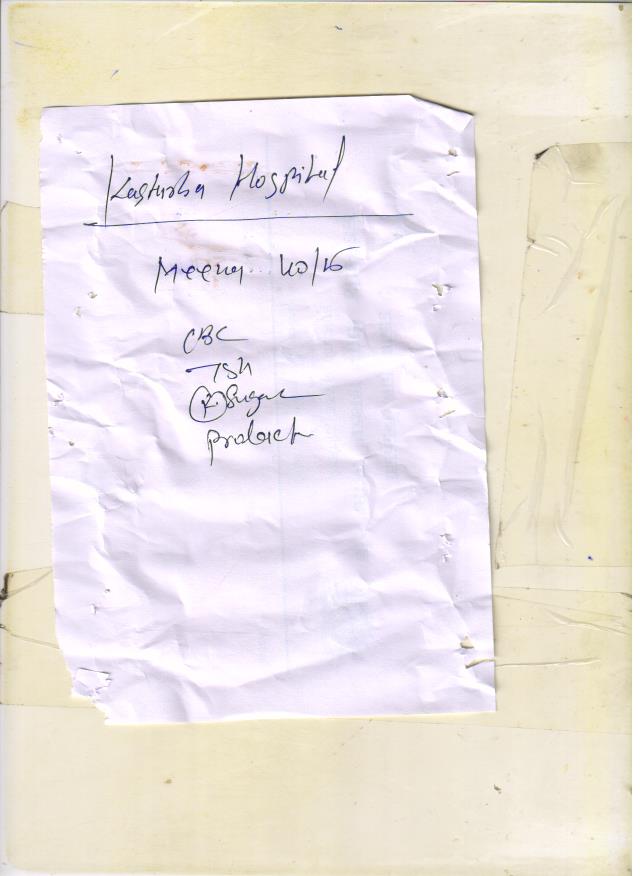 Kasturba Hospital
Meena 40/F
CBC
TSH
(R) Sugar
Prolactin